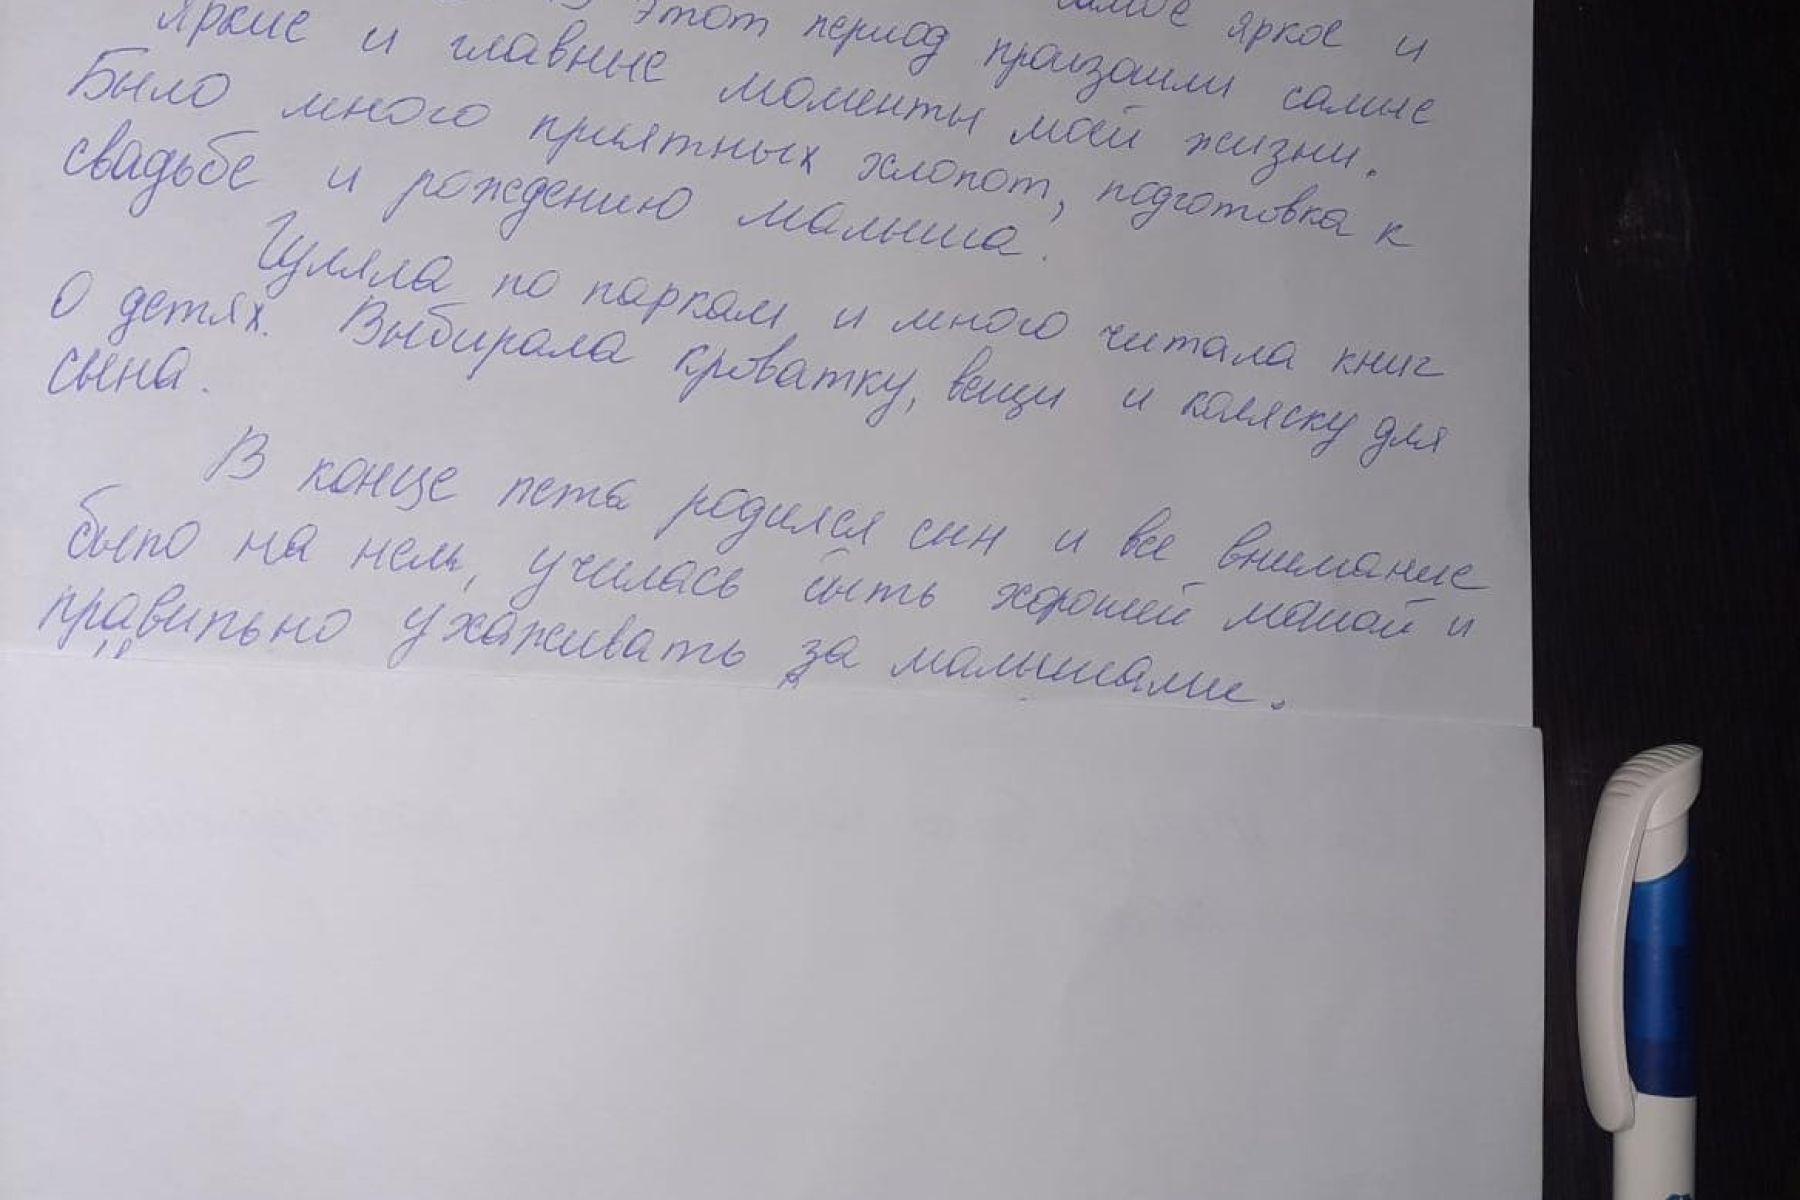 самое яркое и
этот период произошли самые
яркие и главные моменты моей жизни.
Было много приятных хлопот, подготовка к
свадьбе и рождению малыша.
Гуляла по паркам и много читала книг
о детях. Выбирала кроватку, вещи и коляску для
сына.
В конце лета родился сын и все внимание
было на нем, училась быть хорошей мамой и
правильно ухаживать за малышами.